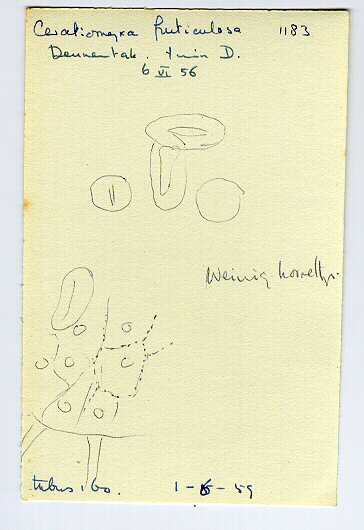 Ceratiomyxa fruticulosa 1183
Dennentak. tuin D.
6 VI 56
Weinig
tubus 160.
1-6-59